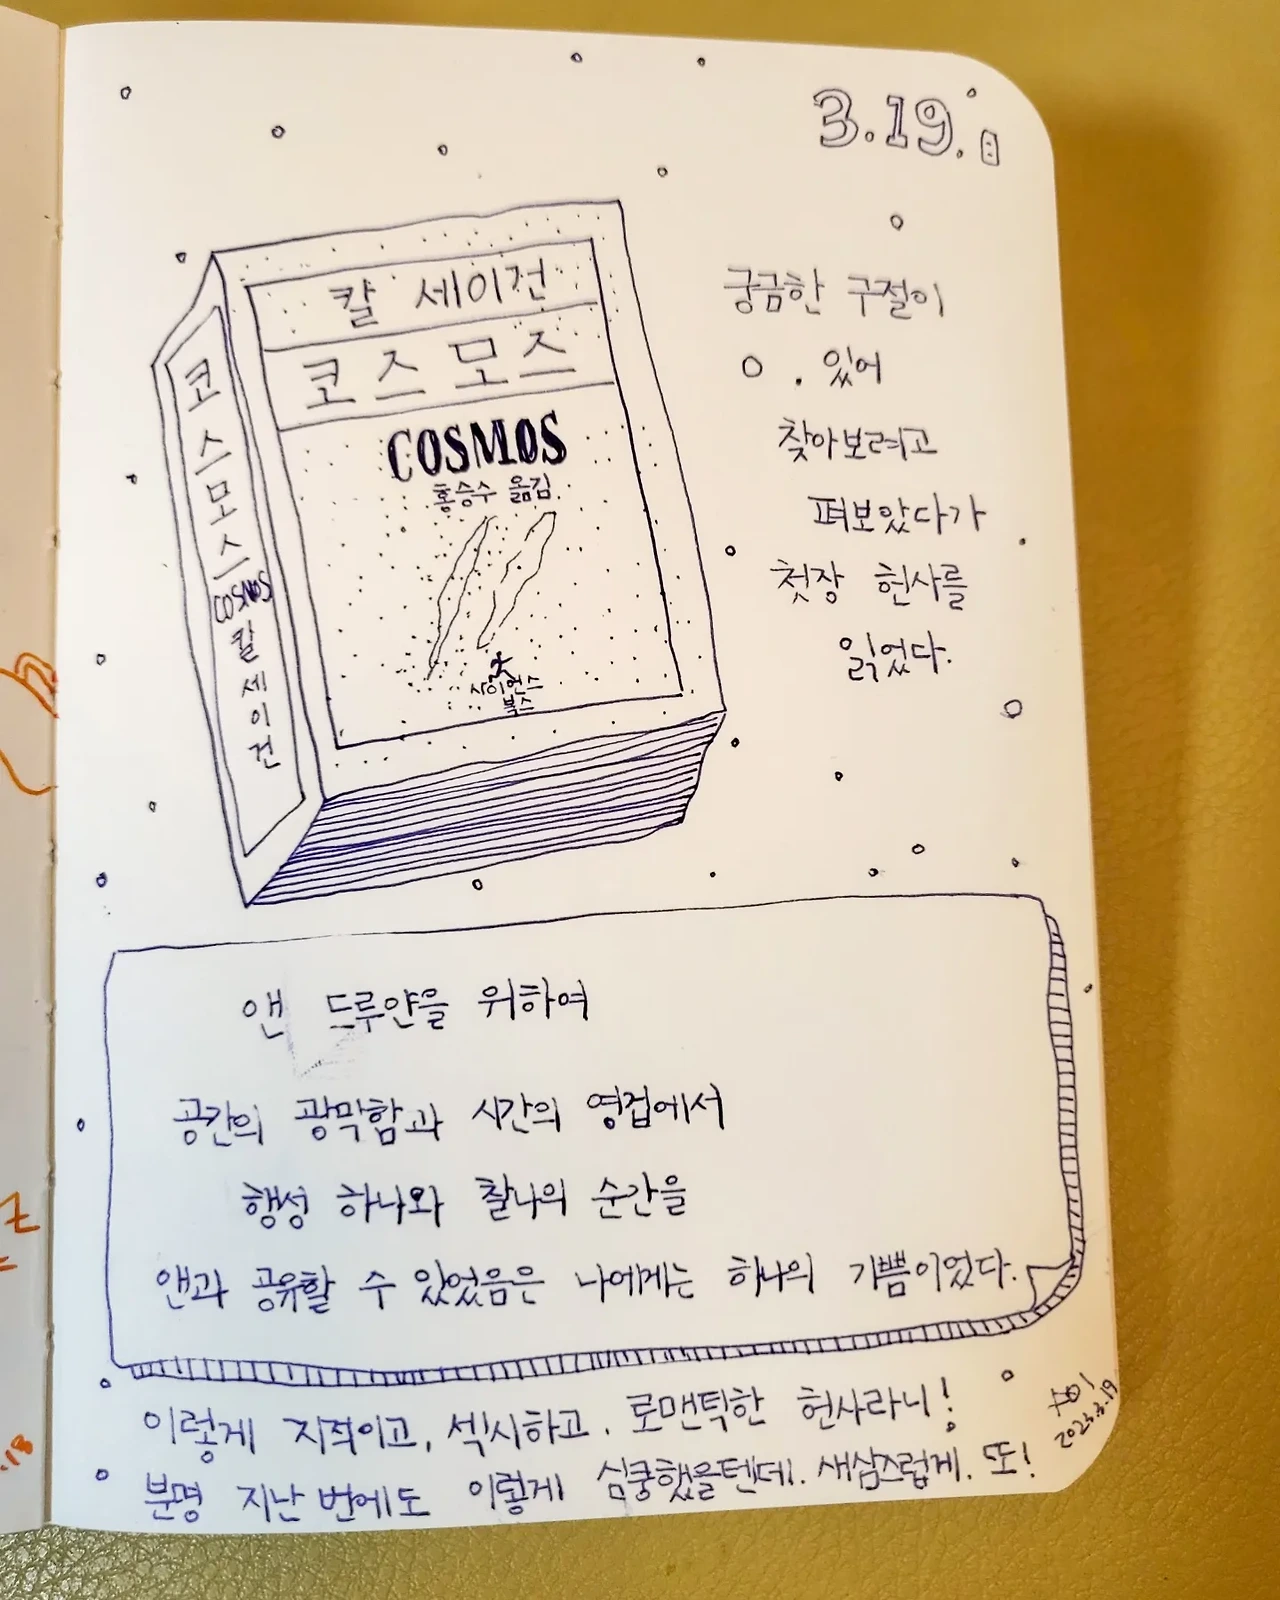 3.19.일
칼 세이건
코스모스
COSMOS
홍승수 옮김
사이언스
북스
코스모스
COSMOS
칼세이건
궁금한 구절이
있어
찾아보려고
펴보았다가
첫장 헌사를
읽었다.
앤 드루얀을 위하여
공간의 광막함과 시간의 영겁에서
행성 하나와 찰나의 순간을
앤과 공유할 수 있었음은 나에게는 하나의 기쁨이었다.
이렇게 지적이고, 섹시하고, 로맨틱한 헌사라니!
분명 지난번에도 이렇게 심쿵했을텐데. 새삼스럽게. 또!
2023.3.19